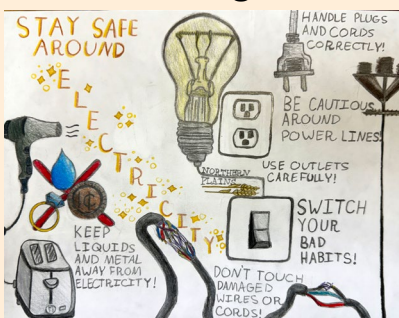 STAY SAFE
AROUND
ELECTRICITY
HANDLE PLUGS
AND CORDS
CORRECTLY!
BE CAUTIOUS
AROUND
POWER LINES!
NORTHERN
PLAINS
USE OUTLETS
CAREFULLY!
SWITCH
YOUR
BAD
HABITS!
KEEP
LIQUIDS
AND METAL
AWAY FROM
ELECTRICITY!
DON'T TOUCH
DAMAGED
WIRES OR
CORDS!